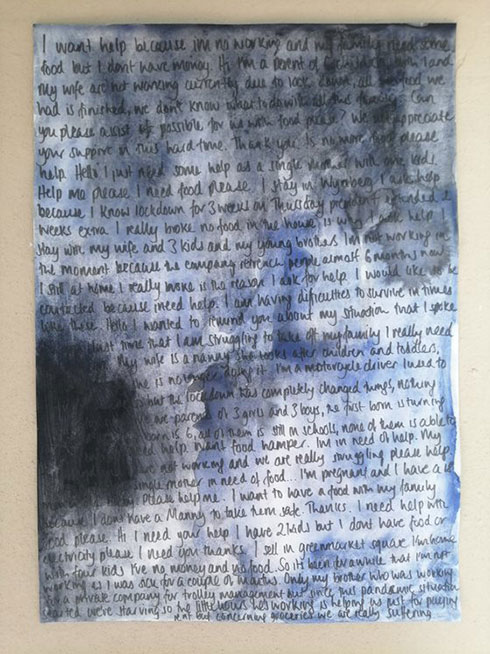 I want help because im no working and my family need some
food but I dont have money. Hi I'm a parent of with I and
My wife are not working currently due to lock down, all we
had is finished, we don't know what to do with Can
you please assist if possible for us with food please? We appreciate
your support in this hard time. Thank you. Is no more food please
help. Hello I just need some help as a single mother with one kids.
Help me please I need food please. I stay in Wynberg I ask help
because I know lockdown for 3 weeks on Thursday president extended 2
weeks extra I really broke no food in the house is why I ask help I
stay with my wife and 3 kids and my young brothers Im not working in
the moment because the company retrench people almost 6 months now
I still at home I really broke is the reason I ask for help. I would like to be
contacted because ineed help. I am having difficulties to survive in times
like these. Hello I wanted to remind you about my situation that I spoke
last time that I am struggling to take of my family I really need
My wife is a nanny she looks after children and toddlers,
she is no longer doing it. I'm a motorcycle driver I used to
but the lockdown has completely changed things, nothing
we are parents of 3 girls and 3 boys, the first born is turning
born is 6, all of them is still in schools, none of them is able to
need help. I want food hamper. Im in need of help. My
not working and we are really struggling please help
single mother in need of food... I'm pregnant and I have a
Please help me. I want to have a food with my family
because I dont have a Manny to take them safe. Thanks. I need help with
food please. Hi I need your help I have 2 kids but I dont have food or
electricity please I need you thanks. I sell in greenmarket square. I'm home
with four kids I've no money and no food. So it's been for awhile that I'm not
working as I was sick for a couple of months. Only my brother who was working
for a private company for trolley management but since this pandemic situation
started we're starving so the little hours he's working is helping us just for paying
rent but concerning groceries we are really suffering